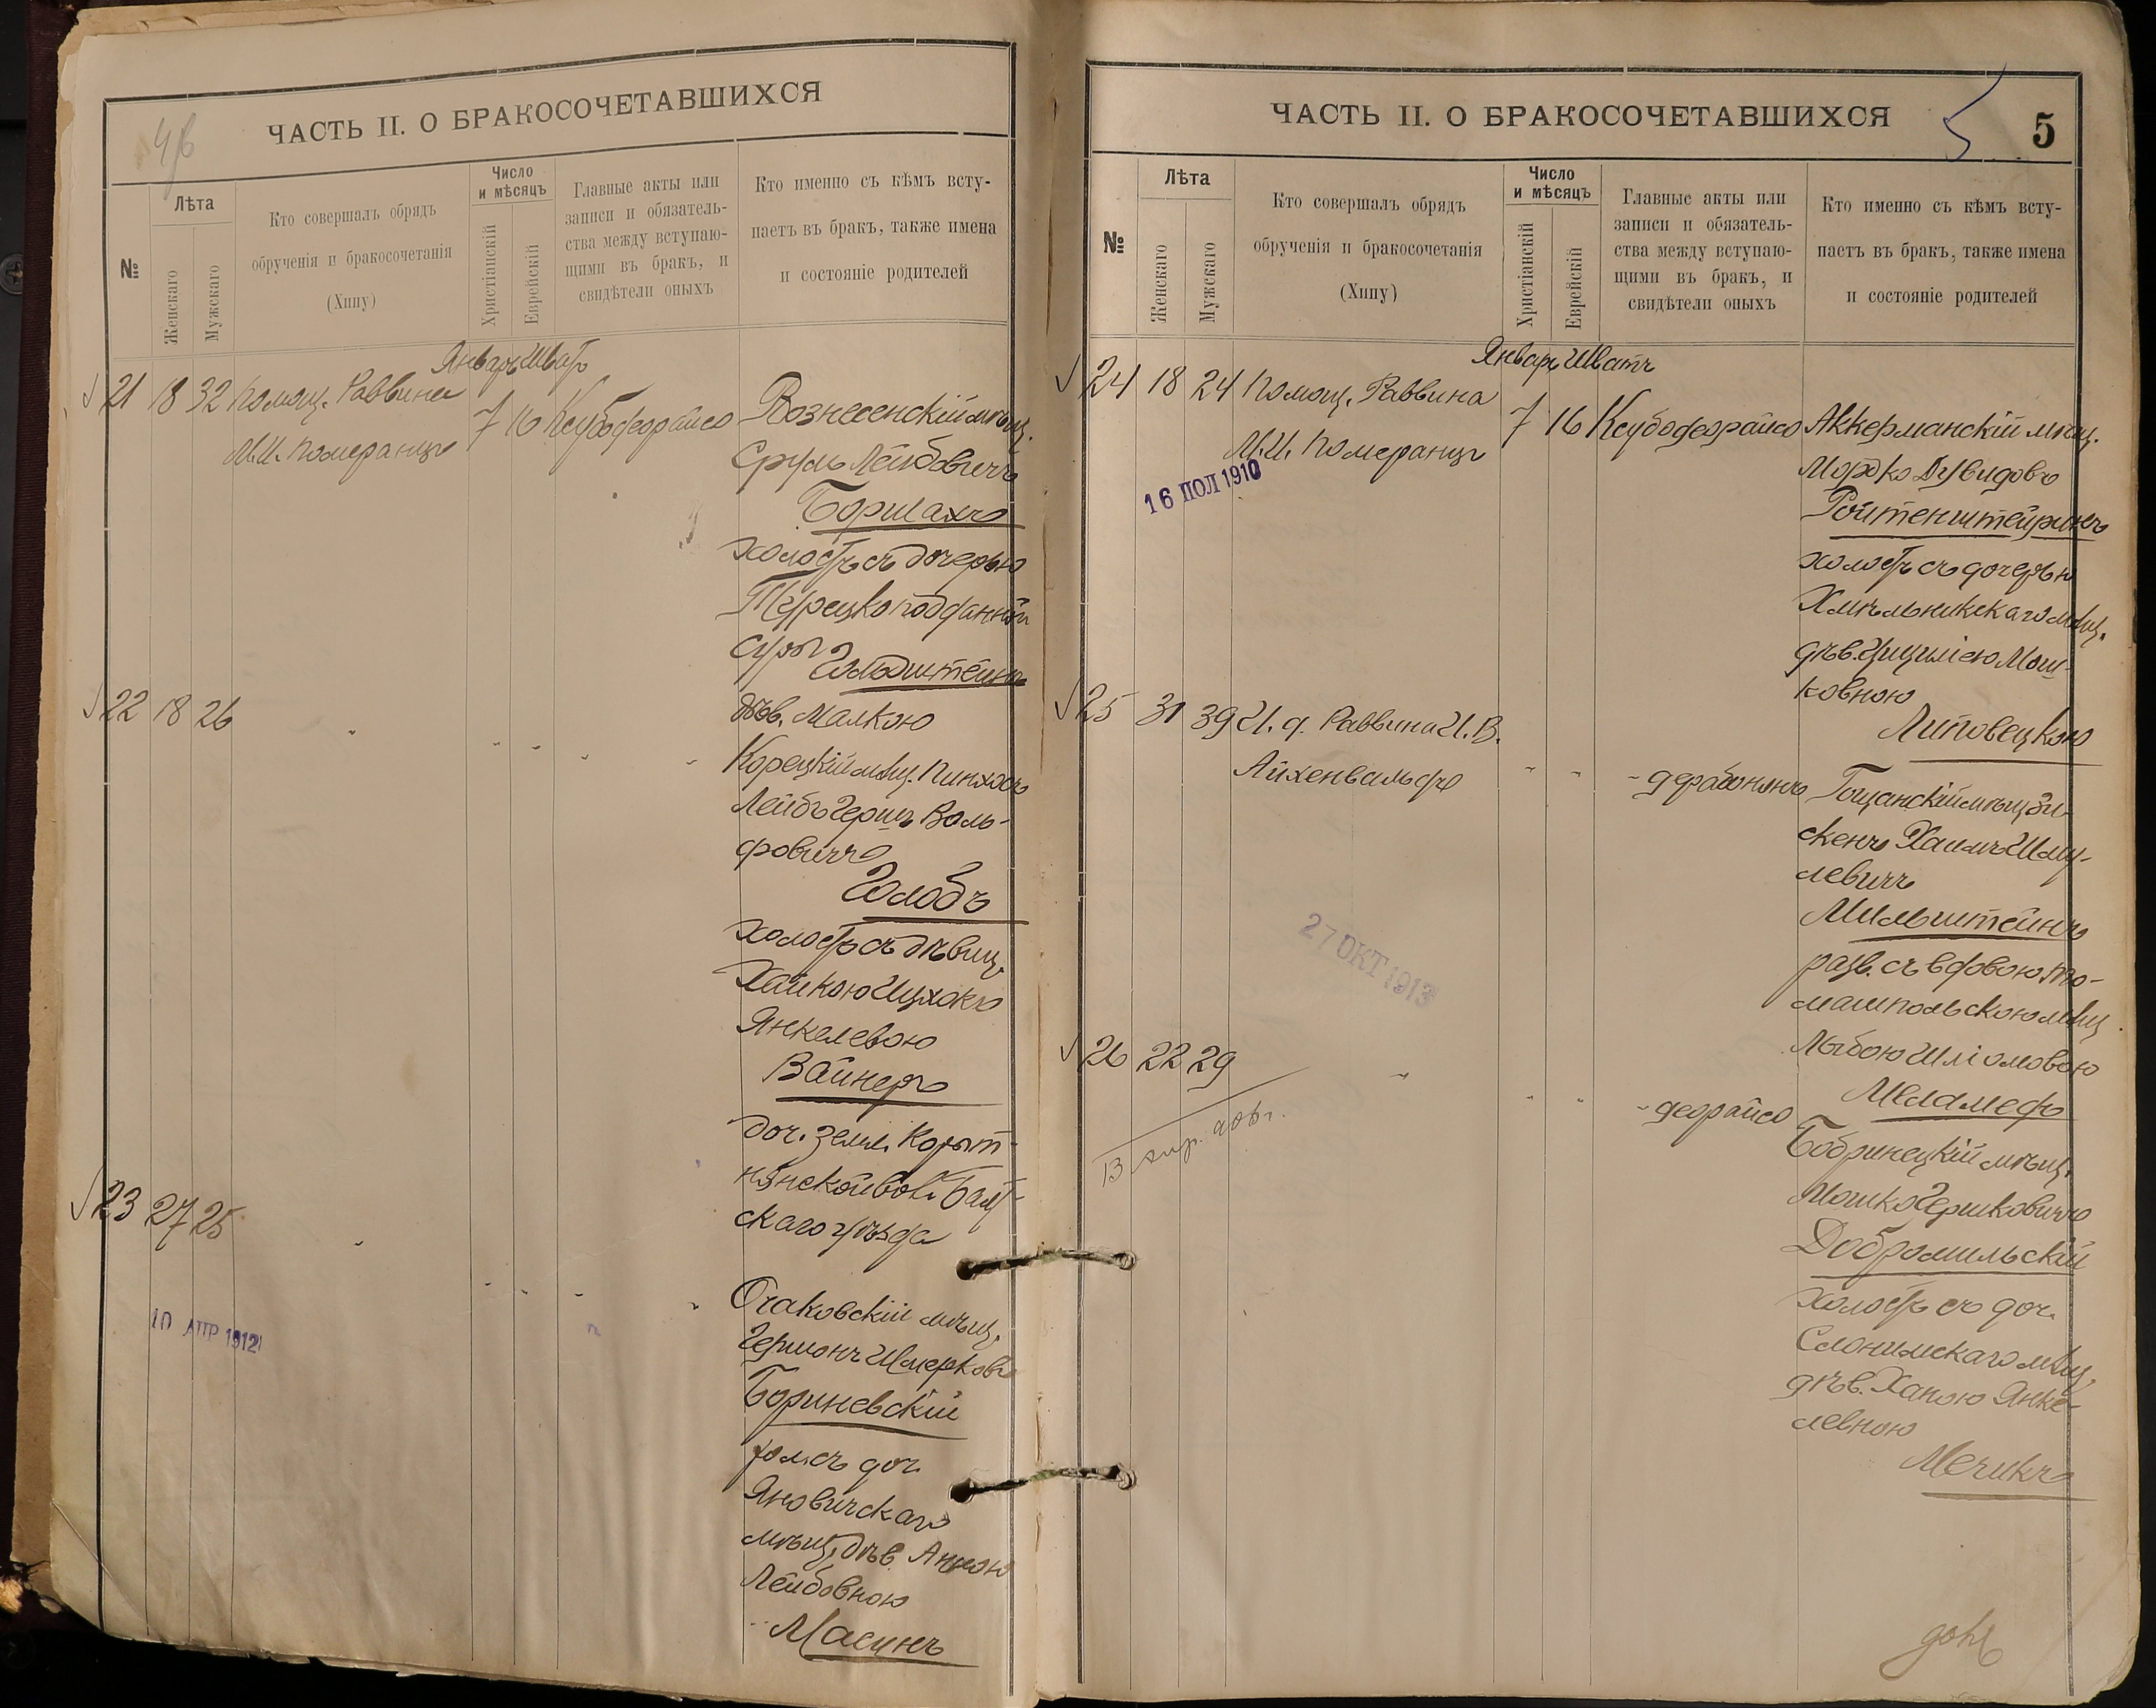 ЧАСТЬ II. О БРАКОСОЧЕТАВШИХСЯ
№
Лѣта
Женскаго
Мужскаго
Кто совершалъ обрядъ
обрученія и бракосочетанія
(Хипу)
Число
и мѣсяцъ
Христіанскій
Еврейскій
Главные акты или
записи и обязатель-
ства между вступаю-
щими въ бракъ, и
свидѣтели оныхъ
Кто именно съ кѣмъ всту-
паетъ въ бракъ, также имена
и состояніе родителей
Январь Шватъ
21 18 32 Помощ. Раввина
М.И. Померанцъ
7 16 Ксубодеорайсо
Вознесенскій мѣщ.
Сруль Лейбовичъ
Боршахъ
холостъ съ дочерью
Турецкоподданной
Суры
Гольдштейнъ
дѣв. Малкою
22 18 26
Корецкій мѣщ. Пинхосъ
Лейбъ Герш Воль-
фовичъ
Голобъ
холостъ съ дѣвиц.
Хайкою Ицхокъ
Янкелевою
Вайнеръ
доч. земл.
ской вол. Балт-
скаго уѣзда
23 27 25
10 АПР 1912
Очаковскій мѣщ.
Гершонъ Шмерковъ
Бориневскій
хол. съ доч.
Яновичскаго
мѣщ. дѣв. Анною
Лейбовною
Масинъ
ЧАСТЬ II. О БРАКОСОЧЕТАВШИХСЯ
5
№
Лѣта
Женскаго
Мужскаго
Кто совершалъ обрядъ
обрученія и бракосочетанія
(Хипу)
Число
и мѣсяцъ
Христіанскій
Еврейскій
Главные акты или
записи и обязатель-
ства между вступаю-
щими въ бракъ, и
свидѣтели оныхъ
Кто именно съ кѣмъ всту-
паетъ въ бракъ, также имена
и состояніе родителей
Январь Шватъ
24 18 24 Помощ. Раввина
М.И. Померанцъ
16 ІЮЛ 1910
7 16 Ксубодеорайсо
Аккерманскій мѣщ.
Мордко Дувидовъ
Ройтенштейрнъ
холостъ съ дочерью
Хмѣльникскаго мѣщ.
дѣв. Цицилiею Мош-
ковною
Липовецкою
25 31 39 И. д. Раввина И. В.
Айхенвальдъ
дерабонинъ
Гощанскій мѣщ. Зи-
скенъ Хаимъ Шму-
левичъ
Мильштейнъ
разв. съ вдовою То-
машпольскою мѣщ.
Лыбою Шліомовою
Меламедъ
27 ОКТ 1913
26 22 29
деорайсо
Бобринецкій мѣщ.
Мошко Гершковичъ
Добромильскій
холостъ съ доч.
Слонимскаго мѣщ.
дѣв. Хапою Янке-
левною
Мечикъ